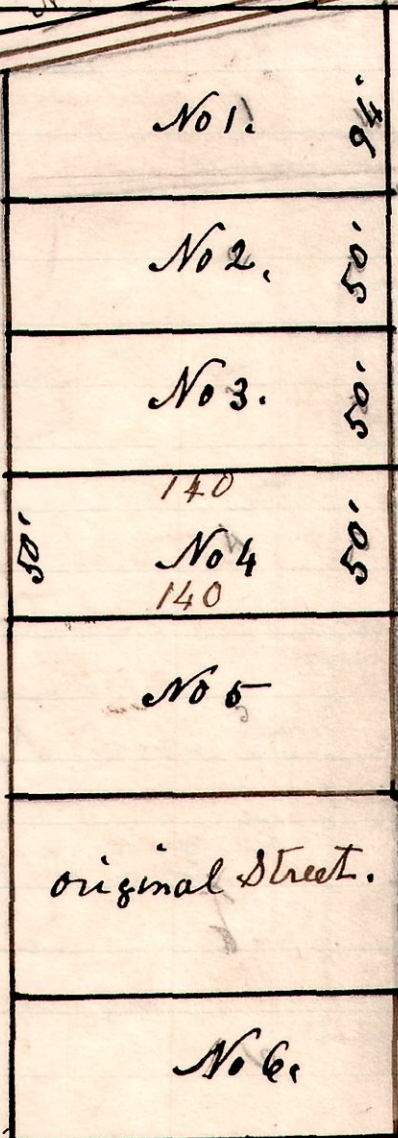 No 1.
No 2.
50'
No 3.
50'
140
50'
No 4
50'
140
No 5
original Street.
No 6.